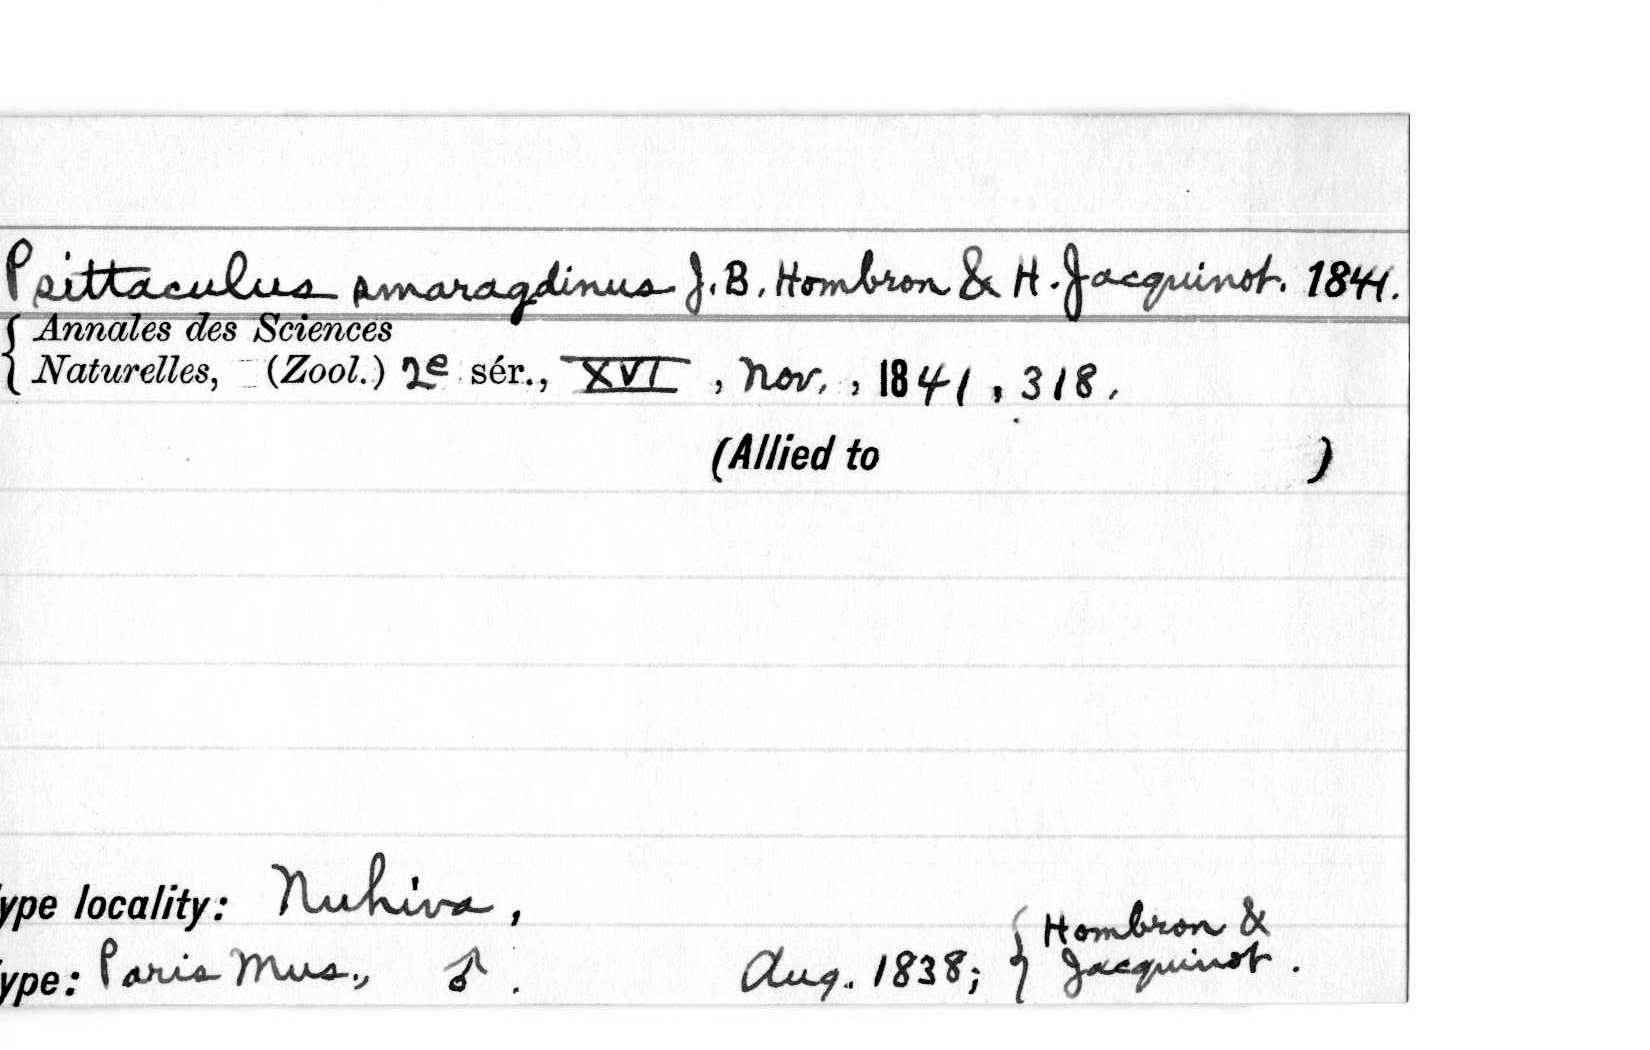 Psittaculus smaragdinus J. B. Hombron & H. Jacquinot. 1841.
{ Annales des Sciences
Naturelles, (Zool.) 2e sér., XVI, Nov., 1841, 318.
(Allied to )
ype locality: Nuhiva,
ype: Paris Mus., ♂. Aug. 1838; { Hombron &
Jacquinot.